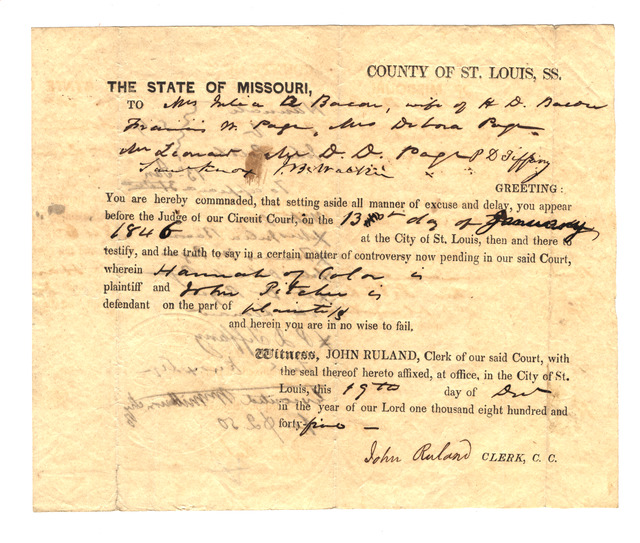 COUNTY OF ST. LOUIS, SS.
THE STATE OF MISSOURI,
TO Mrs Julia A Bacon, wife of H D. Bacon
Francis W. Page, Mrs Debora Page,
Mr Leonard Mr D. D. Page P D Tiffany
Saml Knox
GREETING:
You are hereby commnaded, that setting aside all manner of excuse and delay, you appear
before the Judge of our Circuit Court, on the 13 day of January
1846 at the City of St. Louis, then and there to
testify, and the truth to say in a certain matter of controversy now pending in our said Court,
wherein Hannah of Color is
plaintiff and John Pitcher is
defendant on the part of plaintiff
and herein you are in no wise to fail.
Witness, JOHN RULAND, Clerk of our said Court, with
the seal thereof hereto affixed, at office, in the City of St.
Louis, this 19th day of Dec
in the year of our Lord one thousand eight hundred and
forty-five —
John Ruland CLERK, C. C.